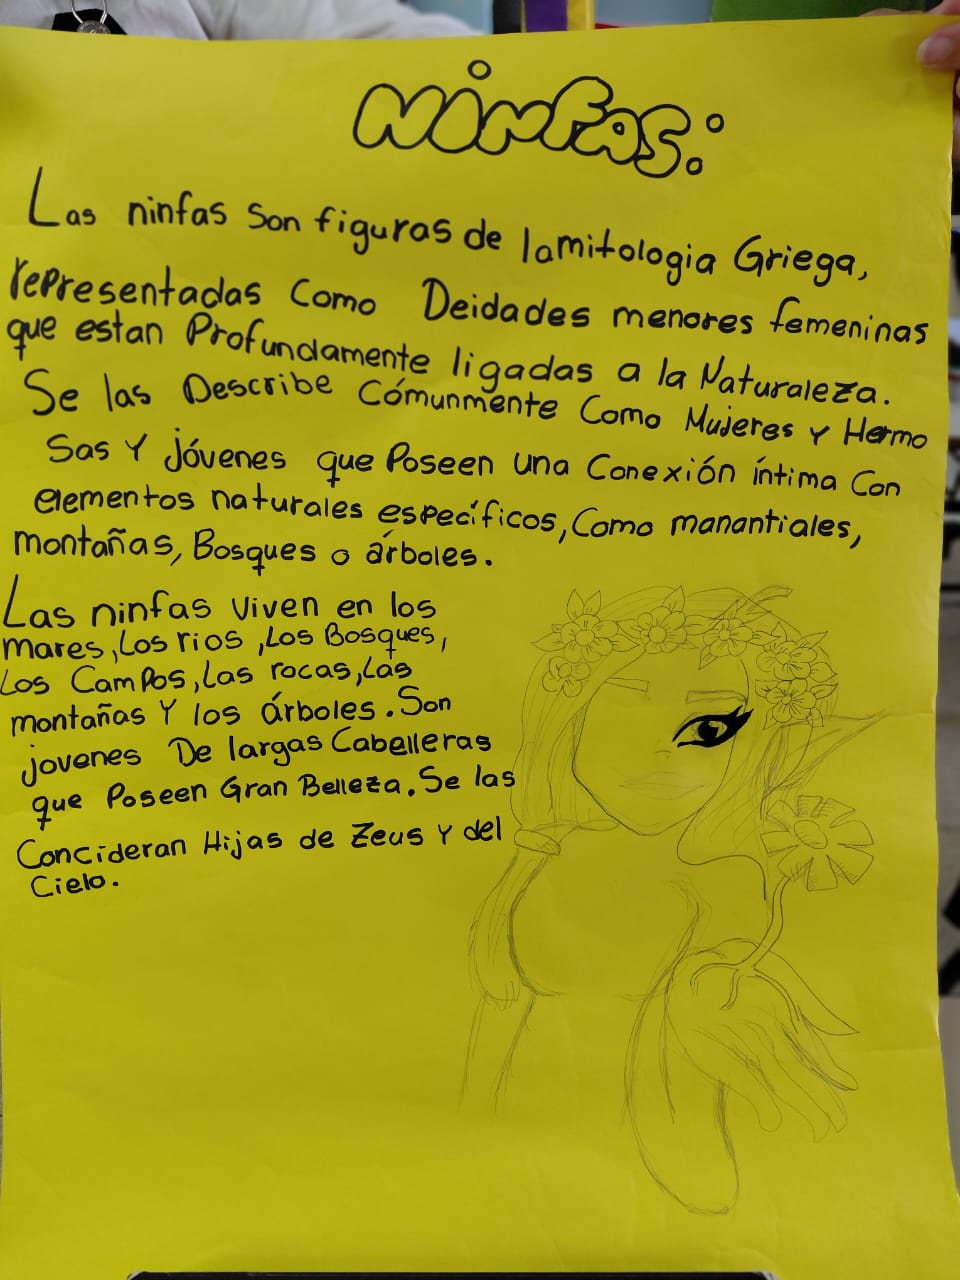 Ninfas:
Las ninfas Son figuras de lamitologia Griega,
representadas Como Deidades menores femeninas
que estan Profundamente ligadas a la Naturaleza.
Se las Describe Cómunmente Como Mujeres y Hermo
Sas Y jóvenes que Poseen una Conexión íntima Con
elementos naturales específicos, Como manantiales,
montañas, Bosques o árboles.
Las ninfas Viven en los
mares, Los rios, Los Bosques,
Los Campos, Las rocas, Las
montañas Y los árboles. Son
jovenes De largas Cabelleras
que Poseen Gran Belleza. Se las
Concideran Hijas de Zeus Y del
Cielo.